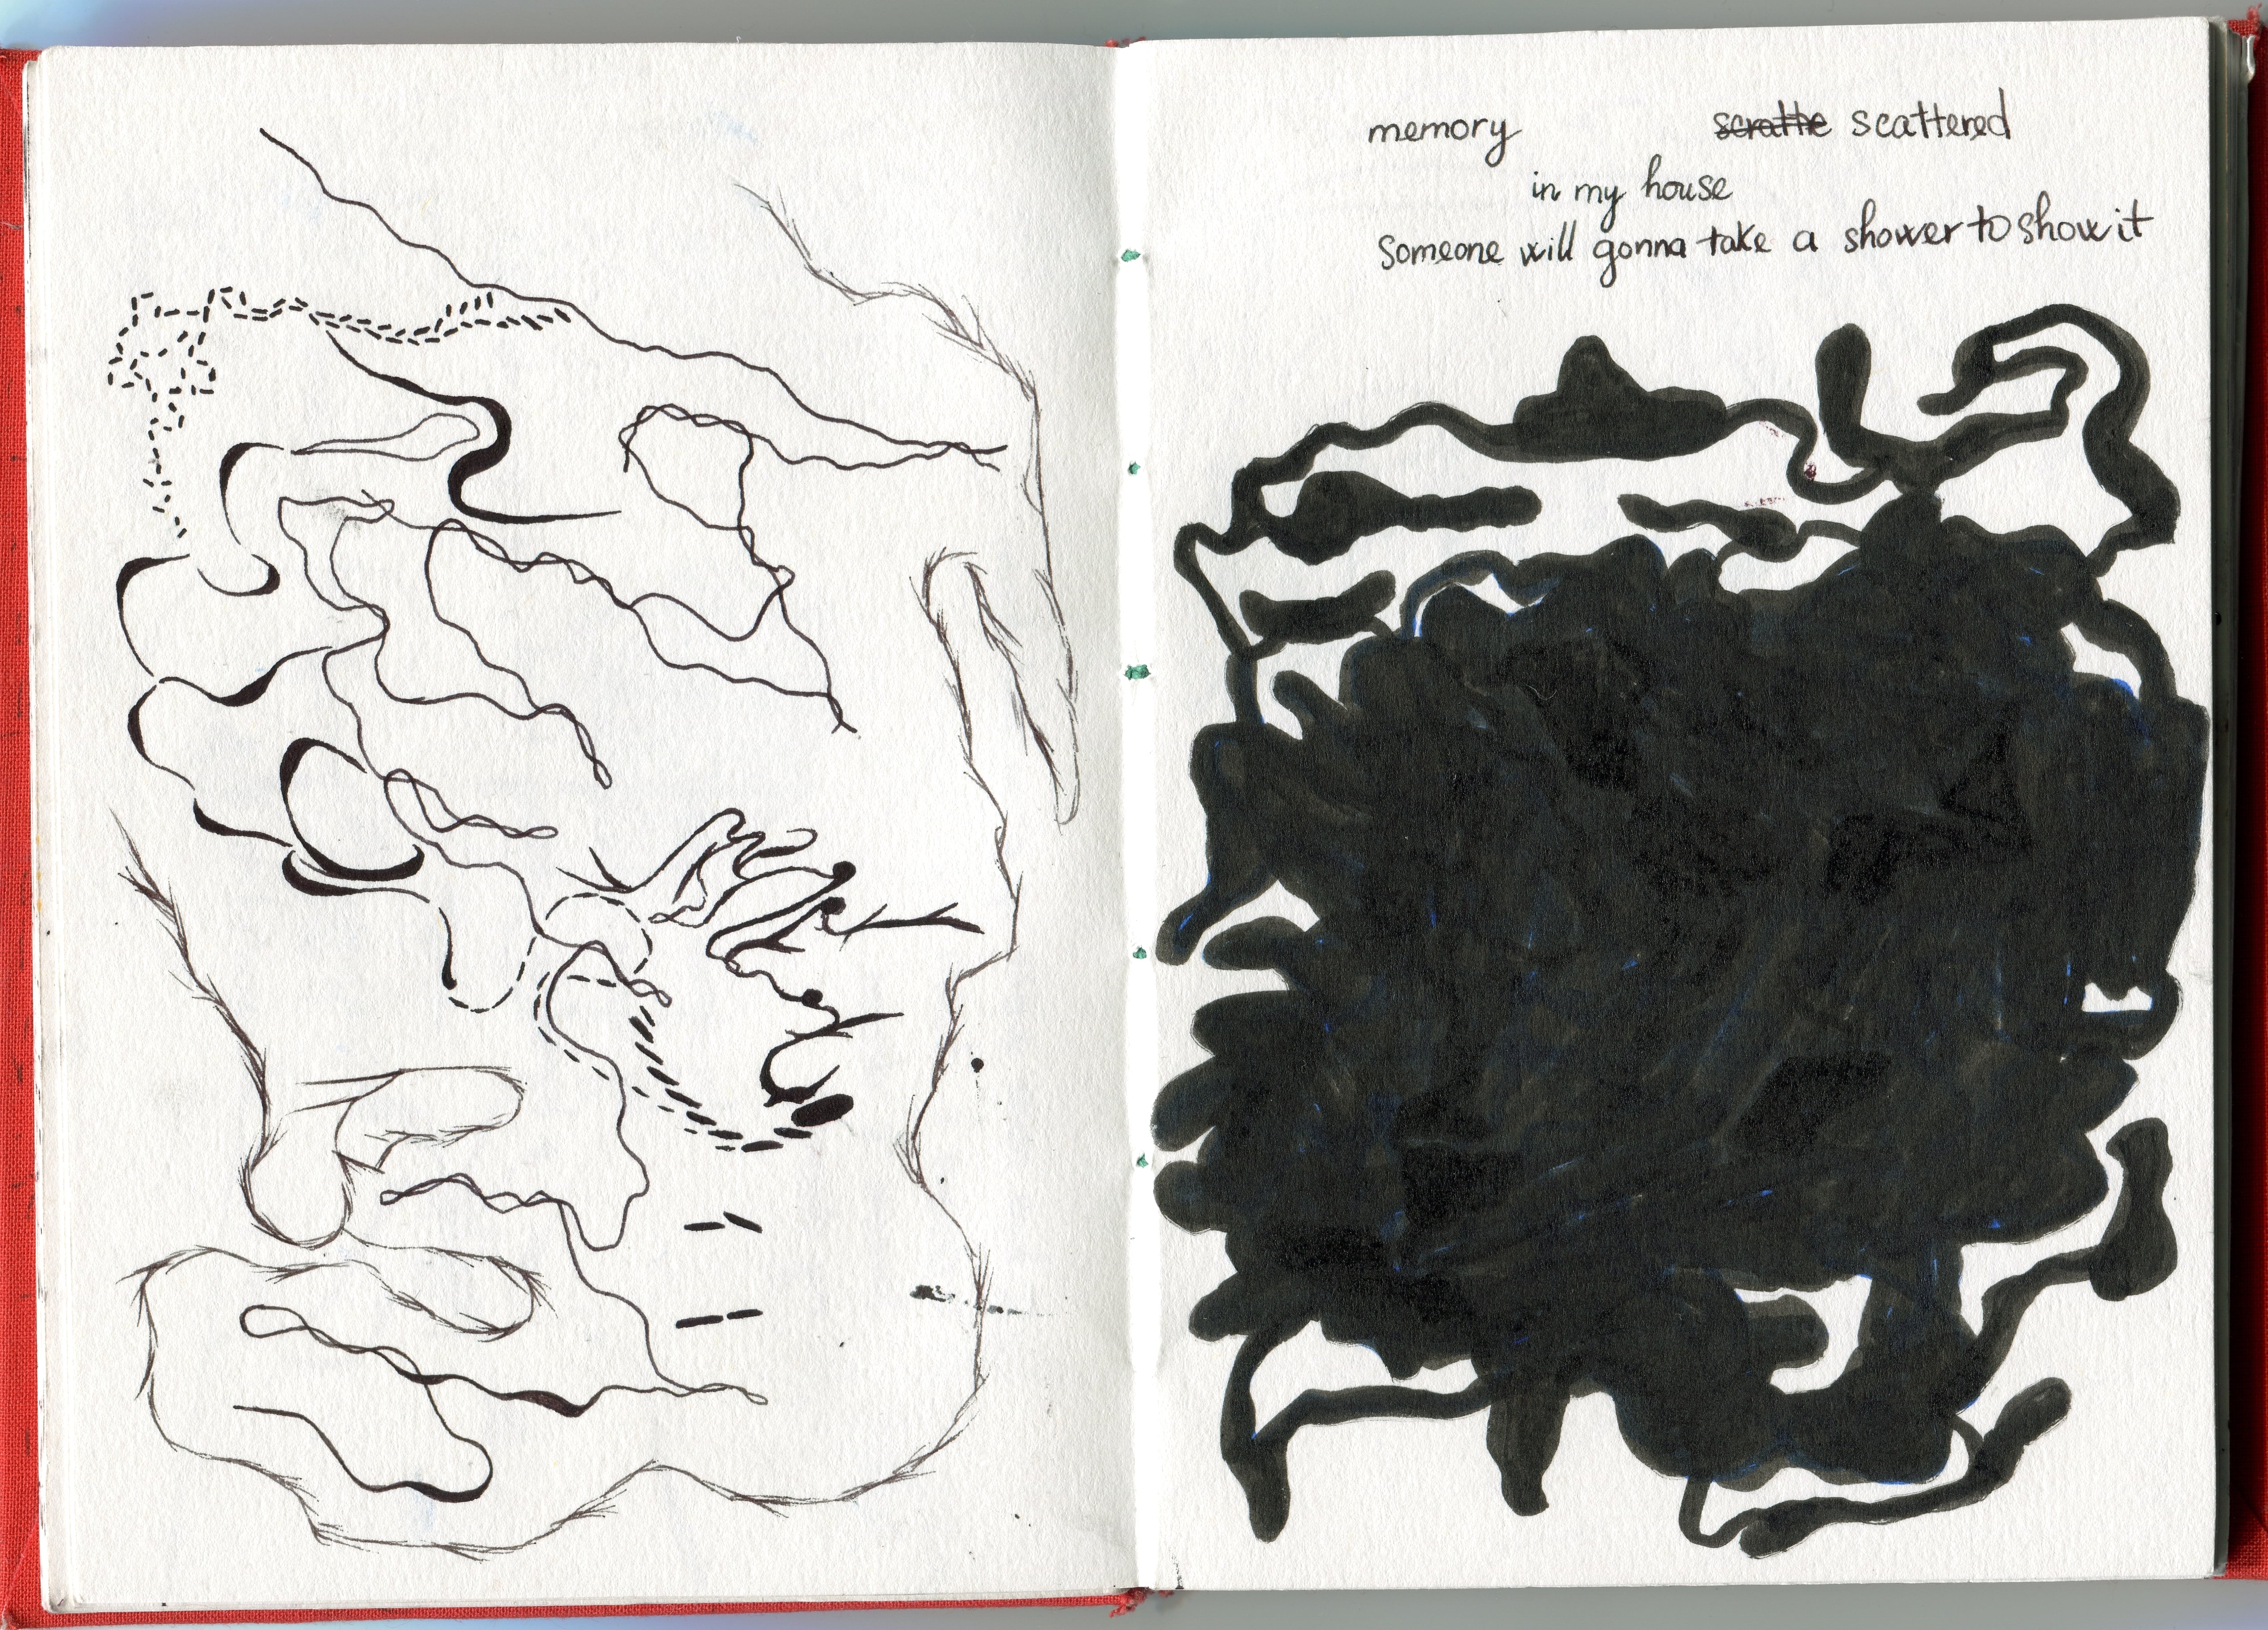 memory scrathe scattered
in my house
Someone will gonna take a shower to show it